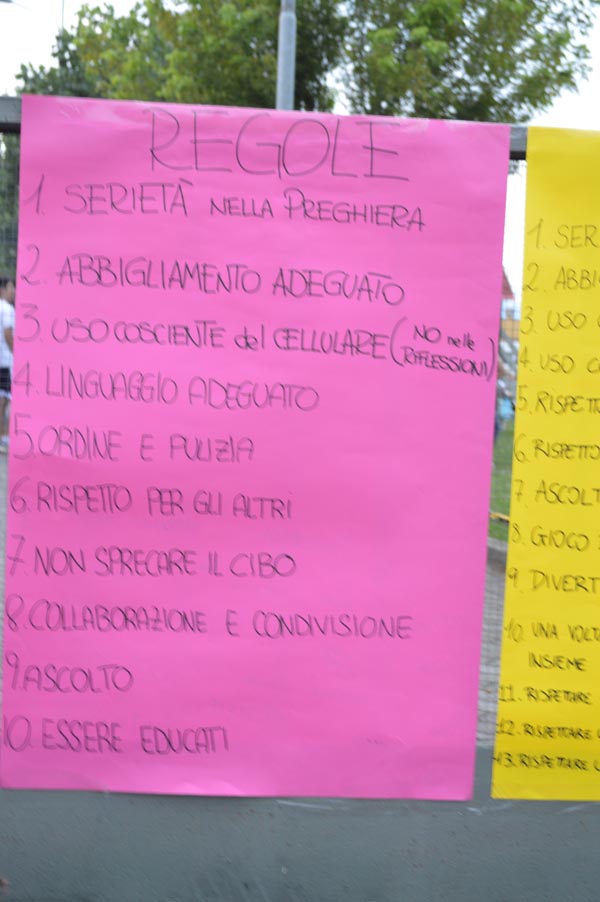 REGOLE
1. SERIETÀ NELLA PREGHIERA
2. ABBIGLIAMENTO ADEGUATO
3. USO COSCIENTE del CELLULARE (NO nelle RIFLESSIONI)
4. LINGUAGGIO ADEGUATO
5. ORDINE E PULIZIA
6. RISPETTO PER GLI ALTRI
7. NON SPRECARE IL CIBO
8. COLLABORAZIONE E CONDIVISIONE
9. ASCOLTO
10. ESSERE EDUCATI
1. SER
2. ABBI
3. USO
4. USO CO
5. RISPETTO
6. RISPETTO
7. ASCOLT
8. GIOCO
9. DIVERT
10. UNA VOLT
INSIEME
11. RISPETTARE
12. RISPETTARE
13. RISPETTARE